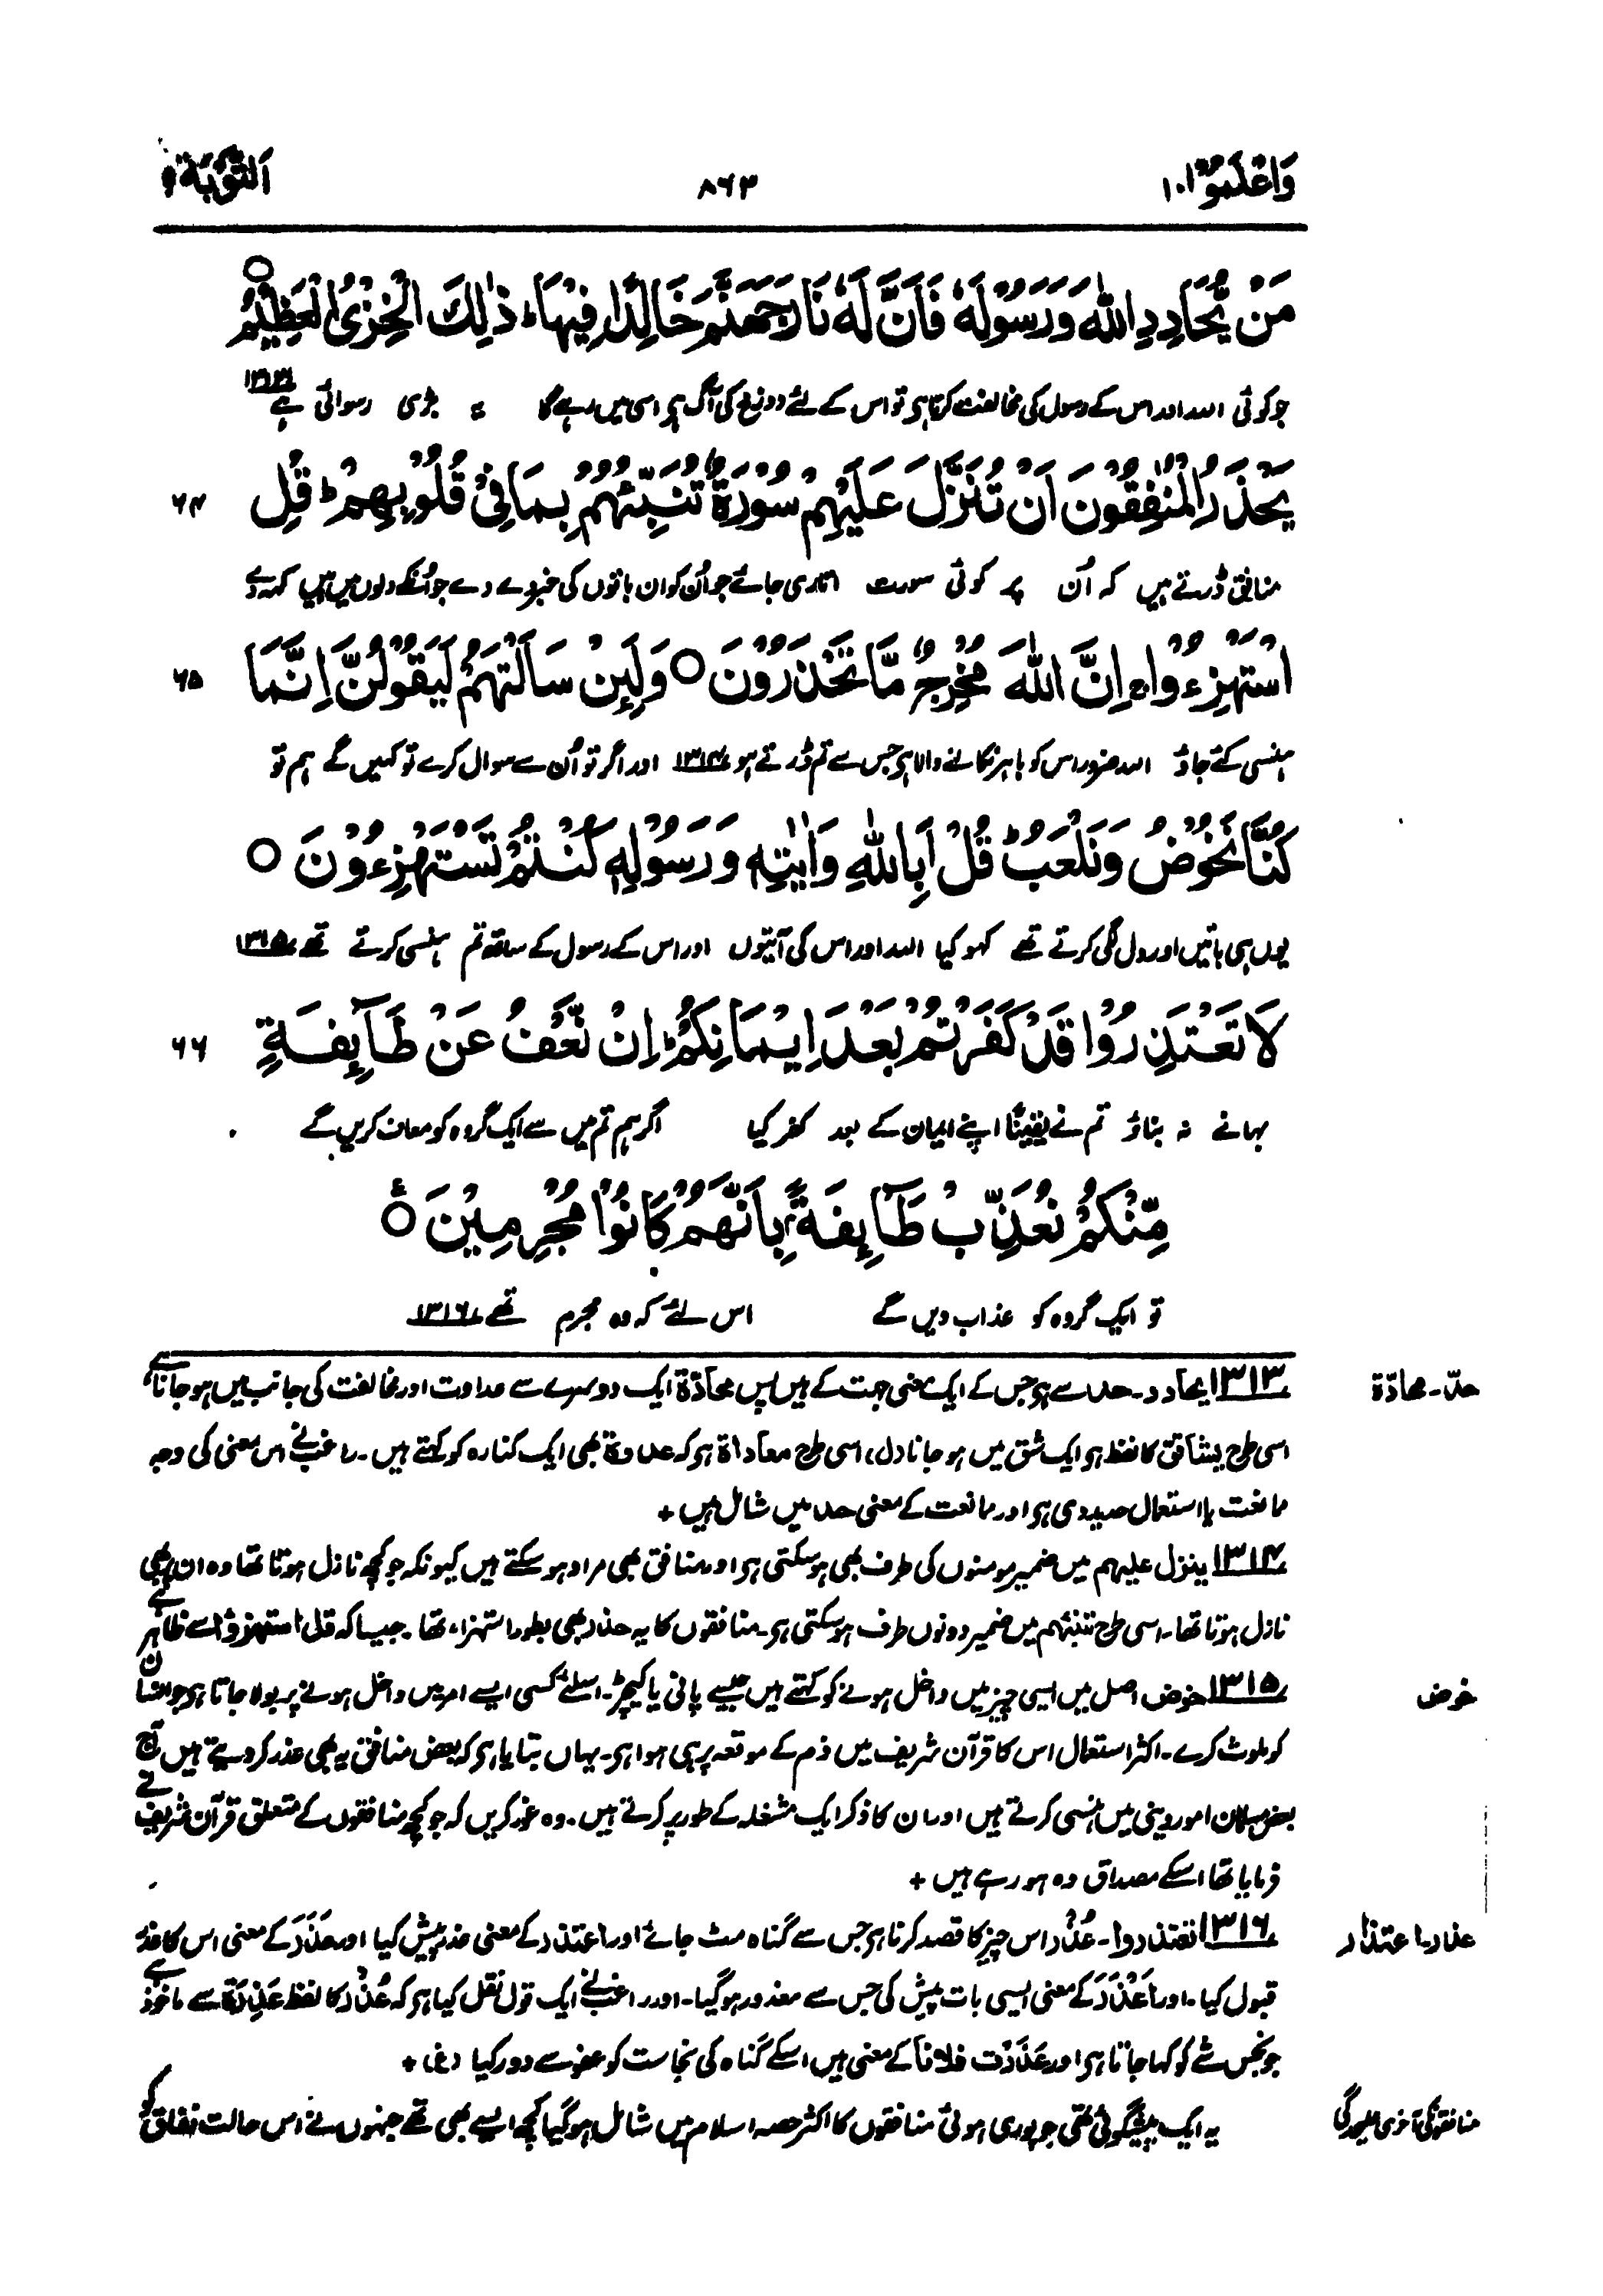 وَاعْلَمُوْٓا ١٠
٨٦٣
اَلتَّوْبَة ٩
مَنْ يُّحَادِدِ اللّٰهَ وَرَسُوْلَهٗ فَاَنَّ لَهٗ نَارَ جَهَنَّمَ خَالِدًا فِيْهَا ؕ ذٰلِكَ الْخِزْىُ الْعَظِيْمُ ○
جو کوئی اللہ اور اس کے رسول کی مخالفت کرتا ہے تو اس کے لئے دوزخ کی آگ ہے اسی میں رہے گا یہ بڑی رسوائی ہے ١٣١٣
يَحْذَرُ الْمُنٰفِقُوْنَ اَنْ تُنَزَّلَ عَلَيْهِمْ سُوْرَةٌ تُنَبِّئُهُمْ بِمَا فِىْ قُلُوْبِهِمْ ؕ قُلِ
٦٤
منافق ڈرتے ہیں کہ اُن پر کوئی سورت اتاری جائے جو اُن کو ان باتوں کی خبر دے دے جو اُنکے دلوں میں ہیں کہہ دے
اسْتَهْزِءُوْا ۚ اِنَّ اللّٰهَ مُخْرِجٌ مَّا تَحْذَرُوْنَ ○ وَلَئِنْ سَاَلْتَهُمْ لَيَقُوْلُنَّ اِنَّمَا
٦٥
ہنسی کئے جاؤ اللہ ضرور اس کو باہر نکالنے والا ہے جس سے تم ڈرتے ہو ١٣١٤ اور اگر تو اُن سے سوال کرے تو کہیں گے ہم تو
كُنَّا نَخُوْضُ وَنَلْعَبُ ؕ قُلْ اَبِاللّٰهِ وَاٰيٰتِهٖ وَرَسُوْلِهٖ كُنْتُمْ تَسْتَهْزِءُوْنَ ○
یوں ہی باتیں اور دل لگی کرتے تھے کہو کیا اللہ اور اس کی آیتوں اور اس کے رسول کے ساتھ تم ہنسی کرتے تھے ١٣١٥
لَا تَعْتَذِرُوْا قَدْ كَفَرْتُمْ بَعْدَ اِيْمَانِكُمْ ؕ اِنْ نَّعْفُ عَنْ طَآئِفَةٍ
٦٦
بہانے نہ بناؤ تم نے یقینًا اپنے ایمان کے بعد کفر کیا اگر ہم تم میں سے ایک گروہ کو معاف کریں گے
مِّنْكُمْ نُعَذِّبْ طَآئِفَةًۢ بِاَنَّهُمْ كَانُوْا مُجْرِمِيْنَ ○ ع
تو ایک گروہ کو عذاب دیں گے اس لئے کہ وہ مجرم تھے ١٣١٦
حدّ۔ محادّۃ
١٣١٣ یحادد۔ حد سے ہے جس کے ایک معنی جہت کے ہیں پس محادّۃ ایک دوسرے سے عداوت اور مخالفت کی جانب میں ہو جانا ہے
اسی طرح یشاقق کا لفظ ہے ایک شق میں ہو جانا (ل)، اسی طرح معاداۃ ہے کہ عدوۃ بھی ایک کنارہ کو کہتے ہیں۔ راغب نے اس معنی کی وجہ
ممانعت یا استعمال حدید دی ہے اور ممانعت کے معنی حد میں شامل ہیں +
١٣١٤ ینزل علیہم میں ضمیر مومنوں کی طرف بھی ہو سکتی ہے اور منافق بھی مراد ہو سکتے ہیں کیونکہ جو کچھ نازل ہوتا تھا وہ ان پر بھی
نازل ہوتا تھا۔ اسی طرح تنبئہم میں ضمیر دونوں طرف ہو سکتی ہے۔ منافقوں کا یہ حذر بھی بطور استہزاء تھا۔ جیسا کہ قل استہزؤا سے ظاہر ہے
خوض
١٣١٥ خوض اصل میں ایسی چیز میں داخل ہونے کو کہتے ہیں جیسے پانی یا کیچڑ۔ اسلئے کسی ایسے امر میں داخل ہونے پر بولا جاتا ہے جو انسان
کو ملوث کرے۔ اکثر استعمال اس کا قرآن شریف میں ذم کے موقعہ پر ہی ہوا ہے۔ یہاں بتایا ہے کہ بعض منافق یہ بھی عذر کر دیتے ہیں آج
بعض مسلمان امور دینی میں ہنسی کرتے ہیں اور ان کا ذکر ایک مشغلہ کے طور پر کرتے ہیں۔ وہ غور کریں کہ جو کچھ منافقوں کے متعلق قرآن شریف نے
فرمایا تھا اسکے مصداق وہ ہو رہے ہیں +
عذر۔ اعتذار
١٣١٦ تعتذروا۔ عُذْر اس چیز کا قصد کرنا ہے جس سے گناہ مٹ جائے اور اعتذر کے معنی عذر پیش کیا اور عَذَرَ کے معنی اس کا عذر
قبول کیا۔ اور اَعْذَرَ کے معنی ایسی بات پیش کی جس سے معذور ہو گیا۔ اور راغب نے ایک قول نقل کیا ہے کہ عُذْر کا لفظ عَذِرَۃ سے ماخوذ ہے
جو نجس شے کو کہا جاتا ہے اور عَذَرْتُ فلانًا کے معنی ہیں اسکے گناہ کی نجاست کو عفو سے دور کیا (غ) +
منافقوں کی آخری علیحدگی
یہ ایک پیشگوئی تھی جو پوری ہوئی منافقوں کا اکثر حصہ اسلام میں شامل ہو گیا کچھ ایسے بھی تھے جنہوں نے اس حالت نفاق کو